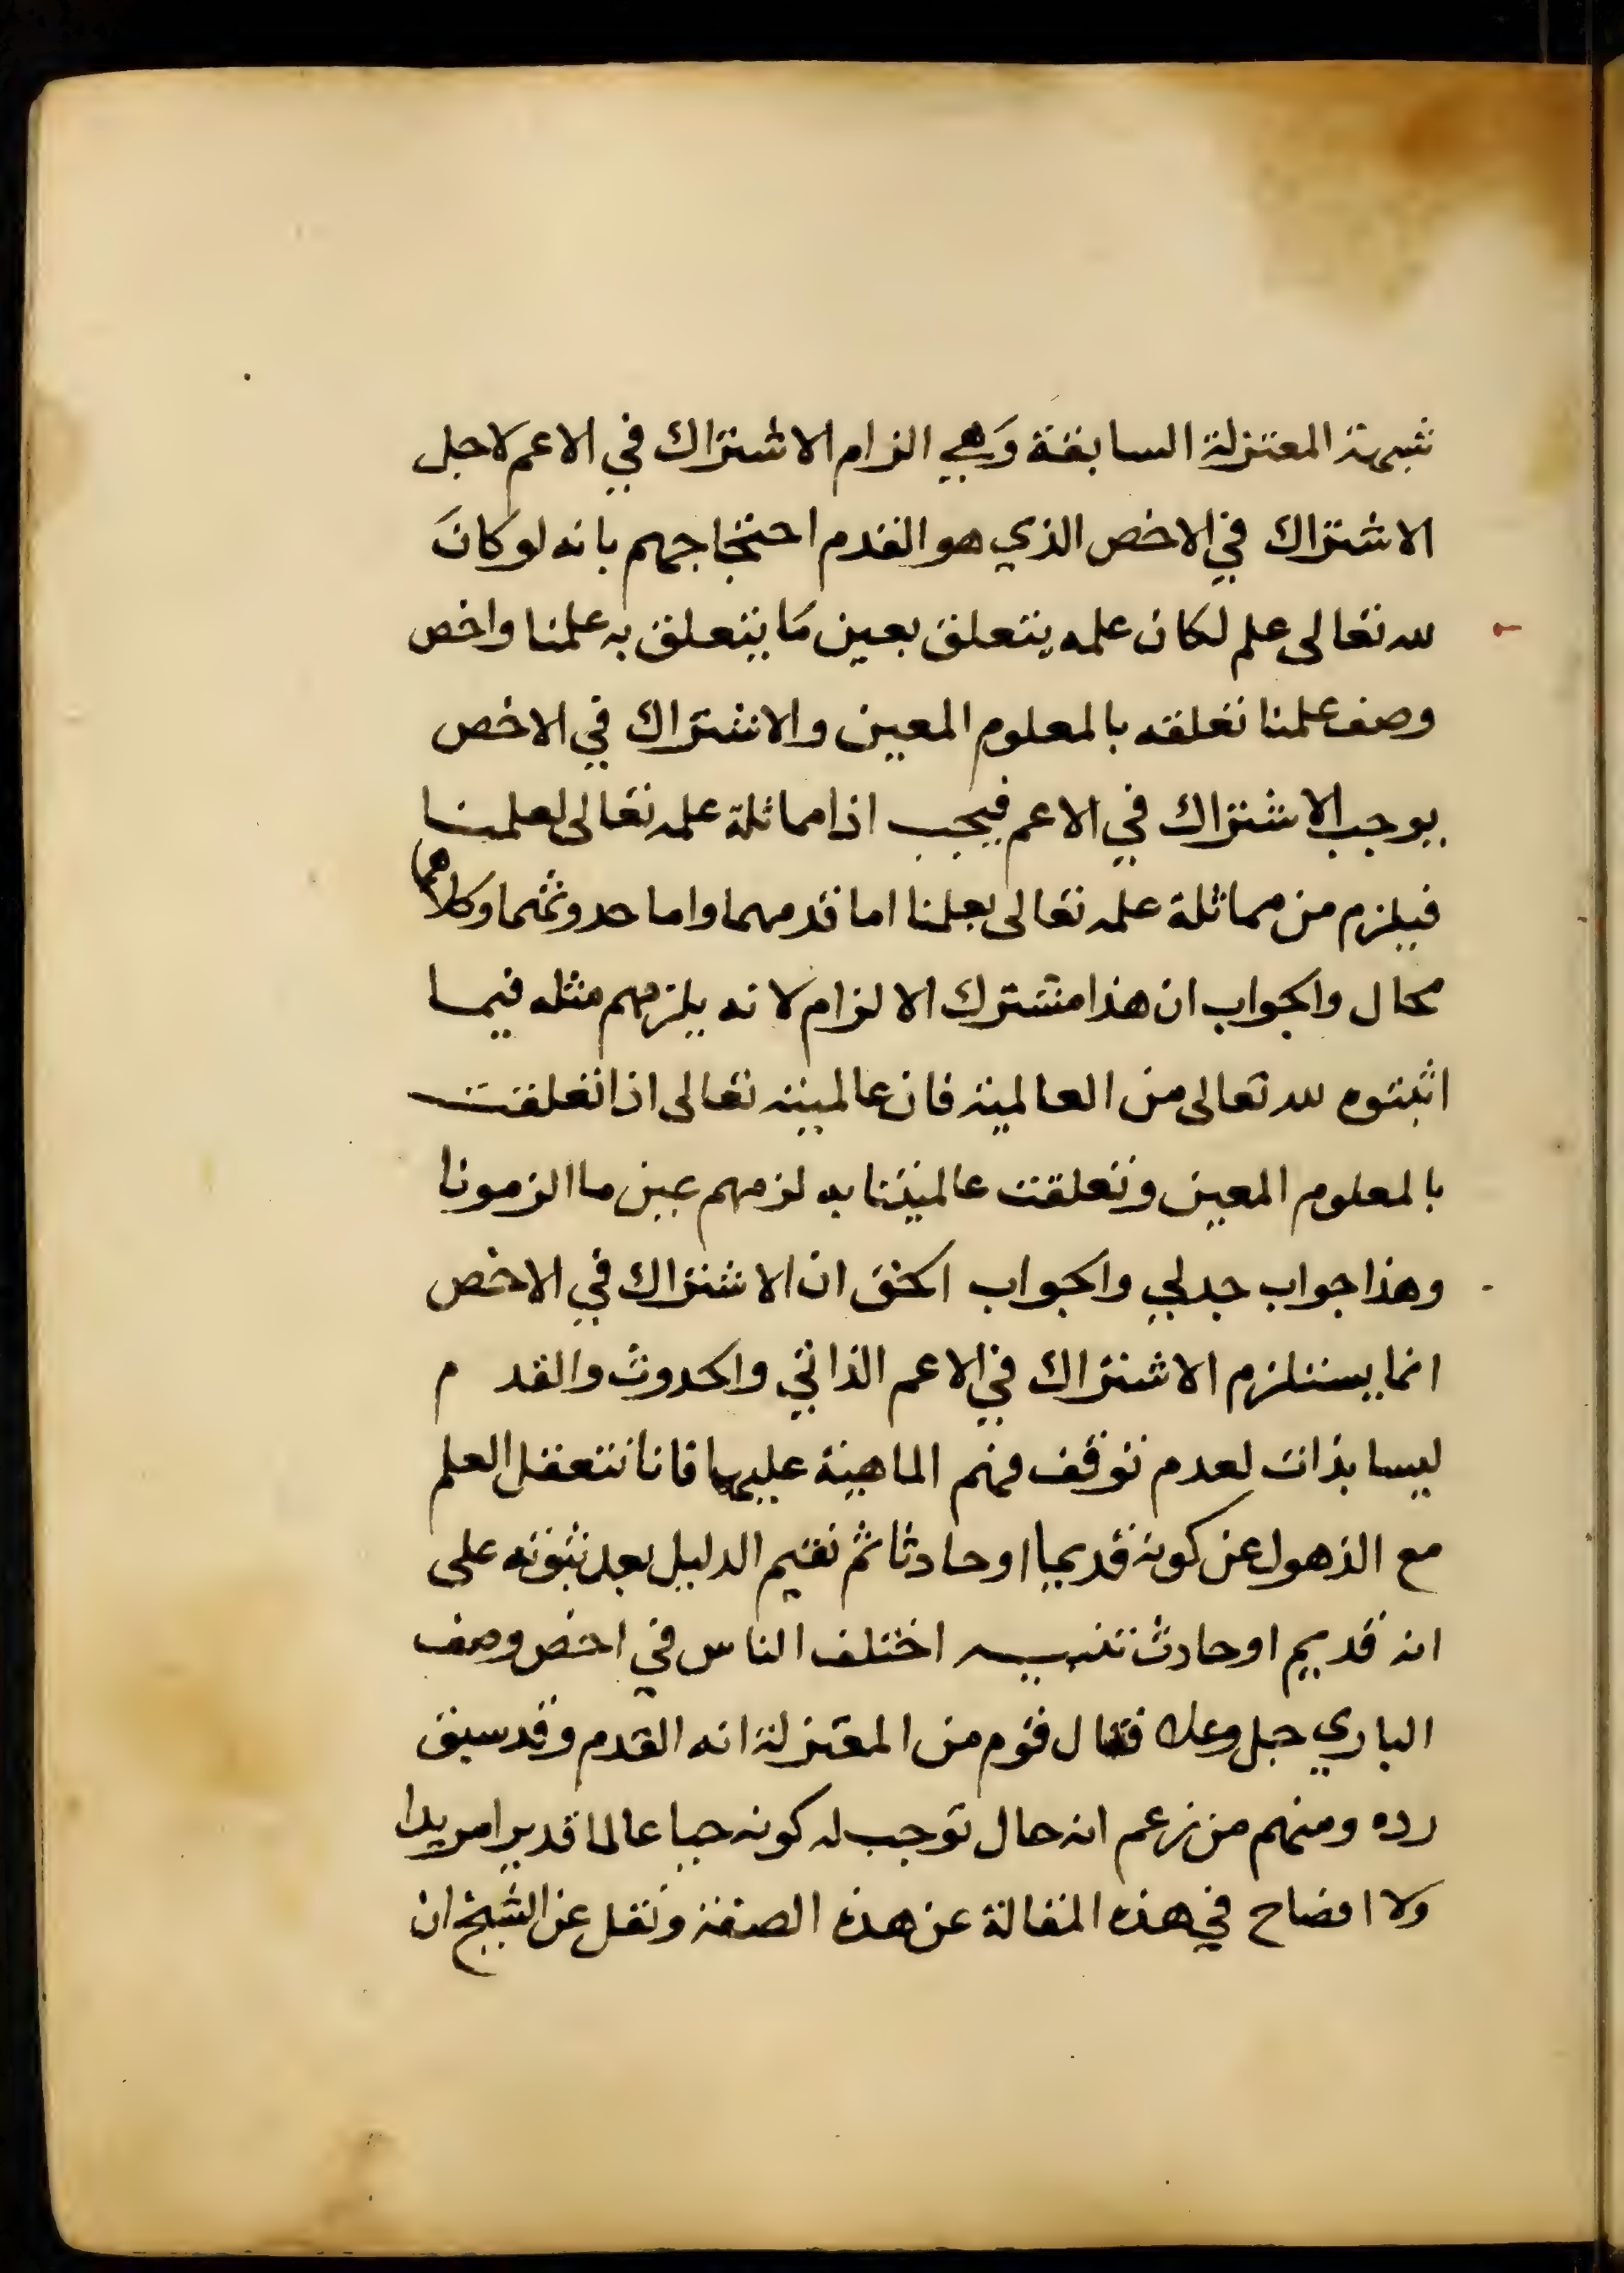 شبهة المعتزلة السابقة وَهي الزام الاشتراك في الاعم لاجل
الاشتراك في الاخص الذي هو القدم احتجاجهم بانه لو كانَ
لله تعالى علم لكان علمه يتعلق بعين مَا يتعلق به علمنا واخص
وصف علمنا تعلقه بالمعلوم المعين والاشتراك في الاخص
يوجب الاشتراك في الاعم فيجب اذا مماثلة علمه تعالى لعلمنا
فيلزم من مماثلة علمه تعالى بعلمنا اما قدمهما واما حدوثهما وكلاهما
محال والجواب ان هذا مشترك الالزام لانه يلزمهم مثله فيما
اثبتوه لله تعالى من العالمية فان عالميته تعالى اذا تعلقت
بالمعلوم المعين وتعلقت عالميتنا به لزمهم عين ما الزمونا
وهذا جواب جدلي والجواب الحق ان الاشتراك في الاخص
انما يستلزم الاشتراك في الاعم الذاتي والحدوث والقد م
ليسا بذات لعدم توقف فهم الماهية عليهما فانا نتعقل العلم
مع الذهول عن كونه قديما او حادثا ثم نقيم الدليل بعد ثبوته على
انه قديم او حادث تنبيه اختلف الناس في اخص وصف
الباري جل وعلا فقال قوم من المعتزلة انه القدم وقد سبق
رده ومنهم من زعم انه حال توجب له كونه حيا عالما قديرا مريدا
ولا افصاح في هذه المقالة عن هذه الصفة ونقل عن الشيخ ان